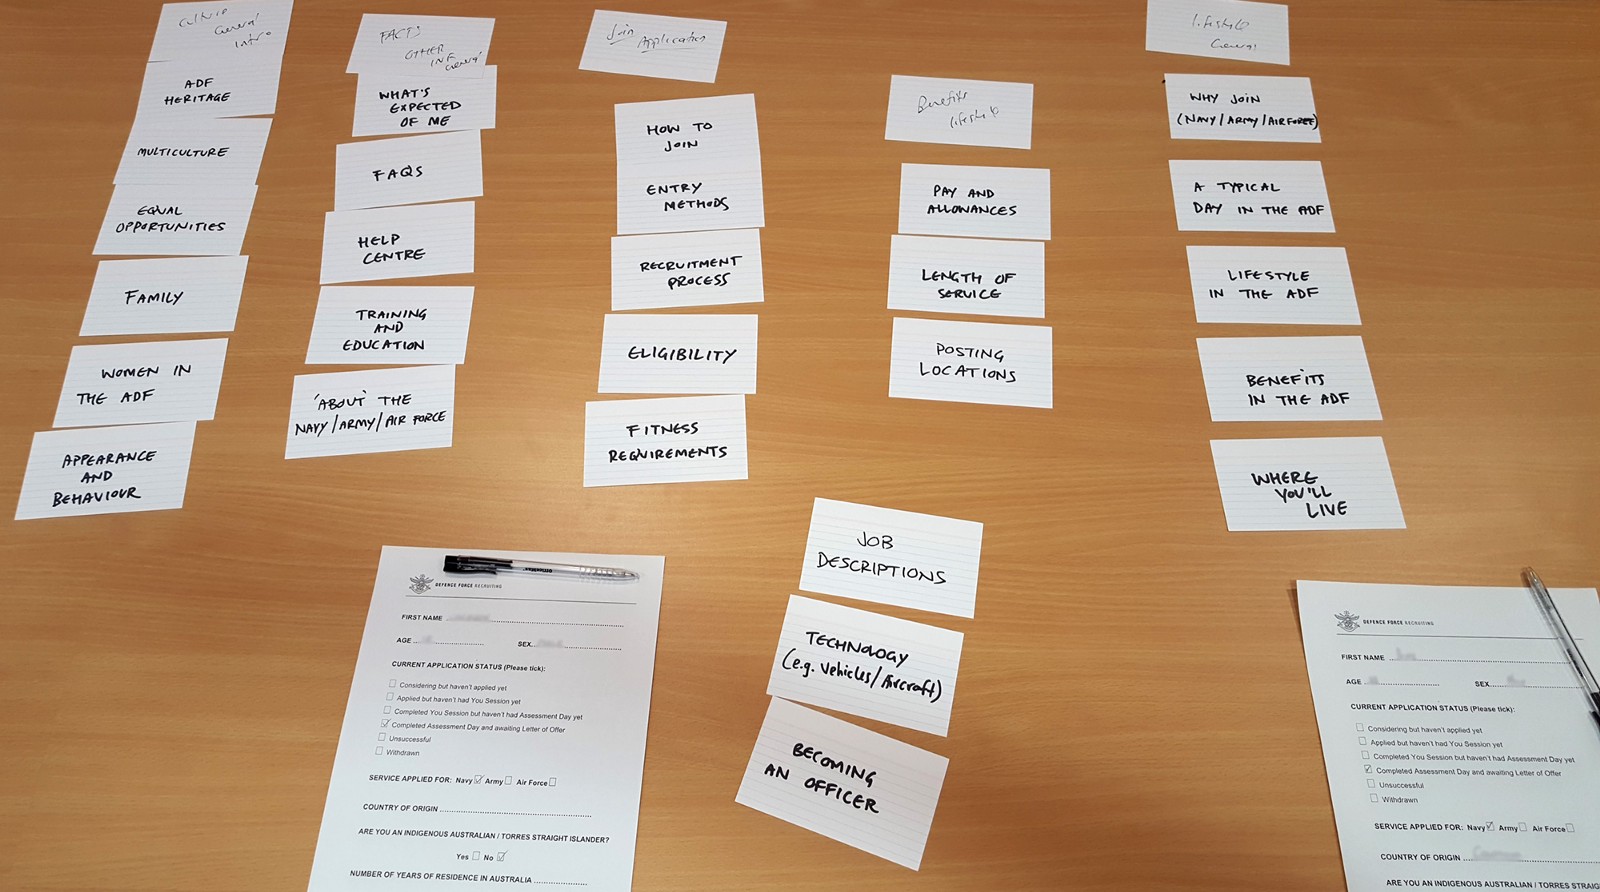 Culture
General
Intro
ADF
HERITAGE
MULTICULTURE
EQUAL
OPPORTUNITIES
FAMILY
WOMEN IN
THE ADF
APPEARANCE
AND
BEHAVIOUR
FACTS
OTHER
INF
General
WHAT'S
EXPECTED
OF ME
FAQS
HELP
CENTRE
TRAINING
AND
EDUCATION
'ABOUT' THE
NAVY/ARMY/AIR FORCE
Join
Application
HOW TO
JOIN
ENTRY
METHODS
RECRUITMENT
PROCESS
ELIGIBILITY
FITNESS
REQUIREMENTS
Benefits
lifestyle
PAY AND
ALLOWANCES
LENGTH OF
SERVICE
POSTING
LOCATIONS
lifestyle
General
WHY JOIN
(NAVY/ARMY/AIRFORCE)
A TYPICAL
DAY IN THE ADF
LIFESTYLE
IN THE ADF
BENEFITS
IN THE ADF
WHERE
YOU'LL
LIVE
JOB
DESCRIPTIONS
TECHNOLOGY
(e.g. Vehicles/Aircraft)
BECOMING
AN OFFICER
officemax
DEFENCE FORCE RECRUITING
FIRST NAME
AGE
SEX
CURRENT APPLICATION STATUS (Please tick):
Considering but haven't applied yet
Applied but haven't had You Session yet
Completed You Session but haven't had Assessment Day yet
Completed Assessment Day and awaiting Letter of Offer
Unsuccessful
Withdrawn
SERVICE APPLIED FOR: Navy Army Air Force
COUNTRY OF ORIGIN
ARE YOU AN INDIGENOUS AUSTRALIAN / TORRES STRAIGHT ISLANDER?
Yes No
NUMBER OF YEARS OF RESIDENCE IN AUSTRALIA
DEFENCE FORCE RECRUITING
FIRST NAME
AGE
SEX
CURRENT APPLICATION STATUS (Please tick):
Considering but haven't applied yet
Applied but haven't had You Session yet
Completed You Session but haven't had Assessment Day yet
Completed Assessment Day and awaiting Letter of Offer
Unsuccessful
Withdrawn
SERVICE APPLIED FOR: Navy Army Air Force
COUNTRY OF ORIGIN
ARE YOU AN INDIGENOUS AUSTRALIAN / TORRES STRAIG